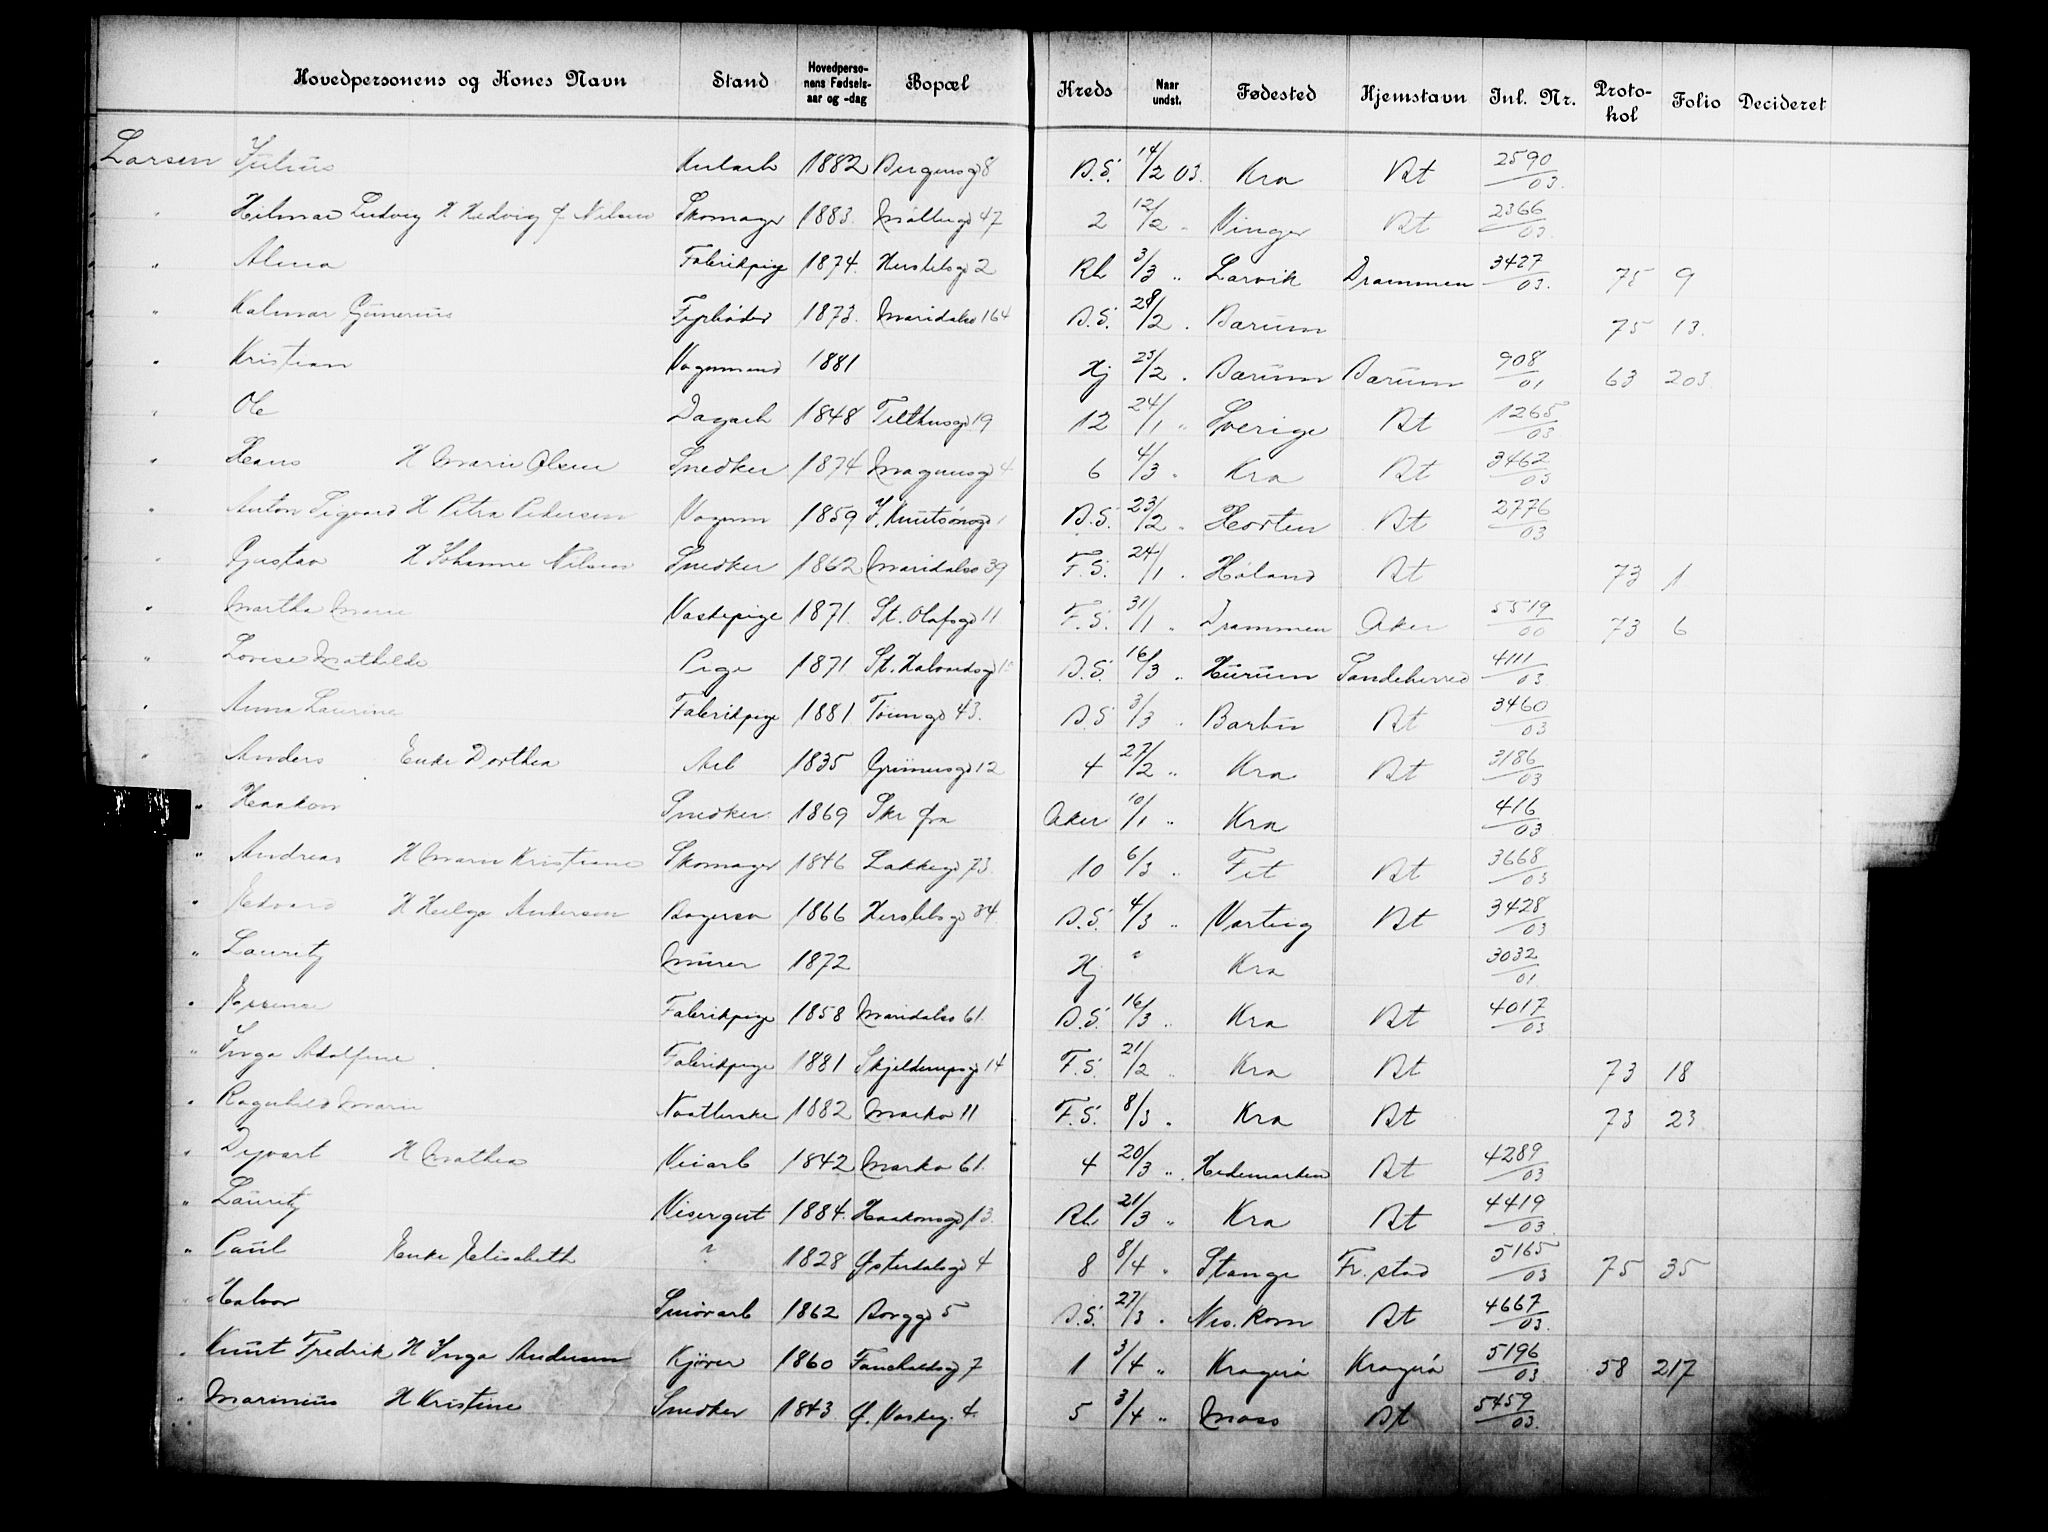 Hovedpersonens og Kones Navn Stand Hovedperso-nens Fødsels-aar og -dag Bopæl Kreds Naar undst. Fødested Hjemstavn Inl. Nr. Proto-kol Folio Decideret
Larsen Julius 1882 Bergensgd 8 B.S. 14/2 03. Kra Bt 2590/03.
" Hilmar Ludvig H Hedvig f. Nilsen Skomager 1883. Møllergd 47 2 12/2 " Vinger Bt 2366/03.
" Alma Fabrikpige 1874. Herslebsgd 2 Rh 3/3 " Larvik Drammen 3427/03. 75 9
" Kalmar Gunerius Fyrbøder 1873. Maridalsv 164 B.S. 28/2 " Bærum 75 13.
" Kristian Vognmand 1881 Hj 25/2 " Bærum Bærum 908/01 63 203
" Ole Dagarb 1848 Tilthusgd 19 12 24/1 " Sverige Bt 1265/03
" Hans H Marie Olsen Snedker 1874 Magnusgd 4 6 4/3 " Kra Bt 3462/03
" Anton Sigvard H Petra Pedersen Vognm 1859 J. Knutsønsgd 1 B.S. 23/2 " Horten Bt 2776/03
" Gustav H Johanne Nilsen Snedker 1862 Maridalsv 39 F.S. 24/1 " Høland Bt 73 1
" Martha Marie Vaskepige 1871. St. Olafsgd 11 F.S. 31/1 " Drammen Aker 5519/00 73 6
" Lovise Mathilde Pige 1871 St. Halvardsgd B.S. 16/3 " Hurum Sandeherred 4111/03
" Anna Laurine Fabrikpige 1881 Tøiengd 43. B.S 3/3 " Barbu Bt 3460/03
" Anders Enke Dorthea Arb 1835 Grünersgd 12 4 27/2 " Kra Bt 3186/03
" Haakon Snedker 1869 Skr fra Aker 10/1 " Kra 416/03
" Andreas H Maren Kristiane Skomager 1846 Lakkegd 73. 10 6/3 " Fet Bt 3668/03
" Edvard H Helga Andersen Bagersv 1866 Herslebsgd 34. B.S. 4/3 " Varteig Bt 3428/03
" Lauritz Murer 1872 Hj " Kra 3032/01
" Fabrikpige 1858 Maridalsv 61. B.S. 16/3 " Kra Bt 4017/03
" Inga Adolfine Fabrikpige 1881 Skjelderupsgd 14 F.S. 21/2 Kra Bt 73 18
" Ragnhild Marie 1882 Markv 11 F.S. 8/3 " Kra Bt 73 23
" Dyvart H Mathea Veiarb 1842 Markv 61. 4 20/3 " Hedemarken Bt 4289/03
" Lauritz Visergut 1884. Haakonsgd 13. Rh 21/3 " Kra Bt 4419/03
" Paul Enke Elisabeth " 1828 Østerdalsgd 4 8 8/4 " Stange Fr. stad 5165/03 75 35
" Halvor Smørarb 1862 Borggd 5 B.S. 27/3 " Nes. Rom Bt 4667/03.
" Knut Fredrik H Inga Andersen Kjører 1860 Fauchaldsgd 7 1 3/4 " Kragerø Kragerø 5196/03 58 217
" Marinius H Kristine Snedker 1843 f. Vaskeg. 4 5 3/4 " Moss Bt 5459/03.